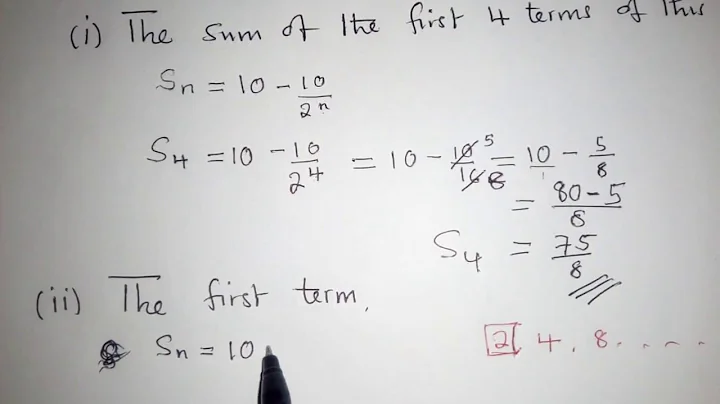 (i) The sum of the first 4 terms of this
Sn = 10 - 10/2^n
S4 = 10 - 10/2^4 = 10 - 10/16 5/8 = 10/1 - 5/8
= 80-5/8
S4 = 75/8
(ii) The first term,
Sn = 10
2, 4, 8. . . . .